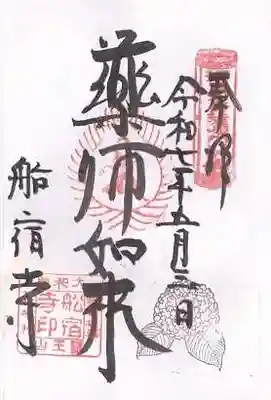 奉拝
令和七年五月三日
薬師如来
船宿寺
大和
船宿
寺印